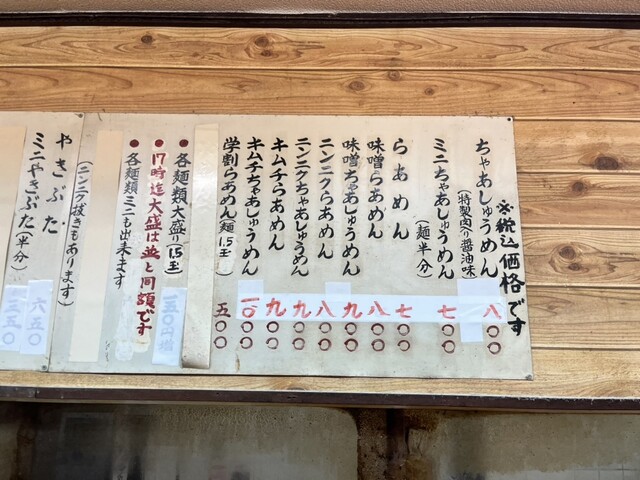 ※税込価格です
ちゃあしゅうめん 八〇〇
(特製肉入り醤油味)
ミニちゃあしゅうめん 七〇〇
(麺半分)
らあめん 七〇〇
味噌らあめん 八〇〇
味噌ちゃあしゅうめん 九〇〇
ニンニクらあめん 八〇〇
ニンニクちゃあしゅうめん 九〇〇
キムチらあめん 九〇〇
キムチちゃあしゅうめん 一〇〇〇
学割らあめん麺1.5玉 五〇〇
●各麺類大盛り(1.5玉) 一五〇円増
●17時迄大盛は並と同額です
●各麺類ミニも出来ます
(ニンニク抜きもあります)
やきぶた 六五〇
ミニやきぶた(半分) 三五〇